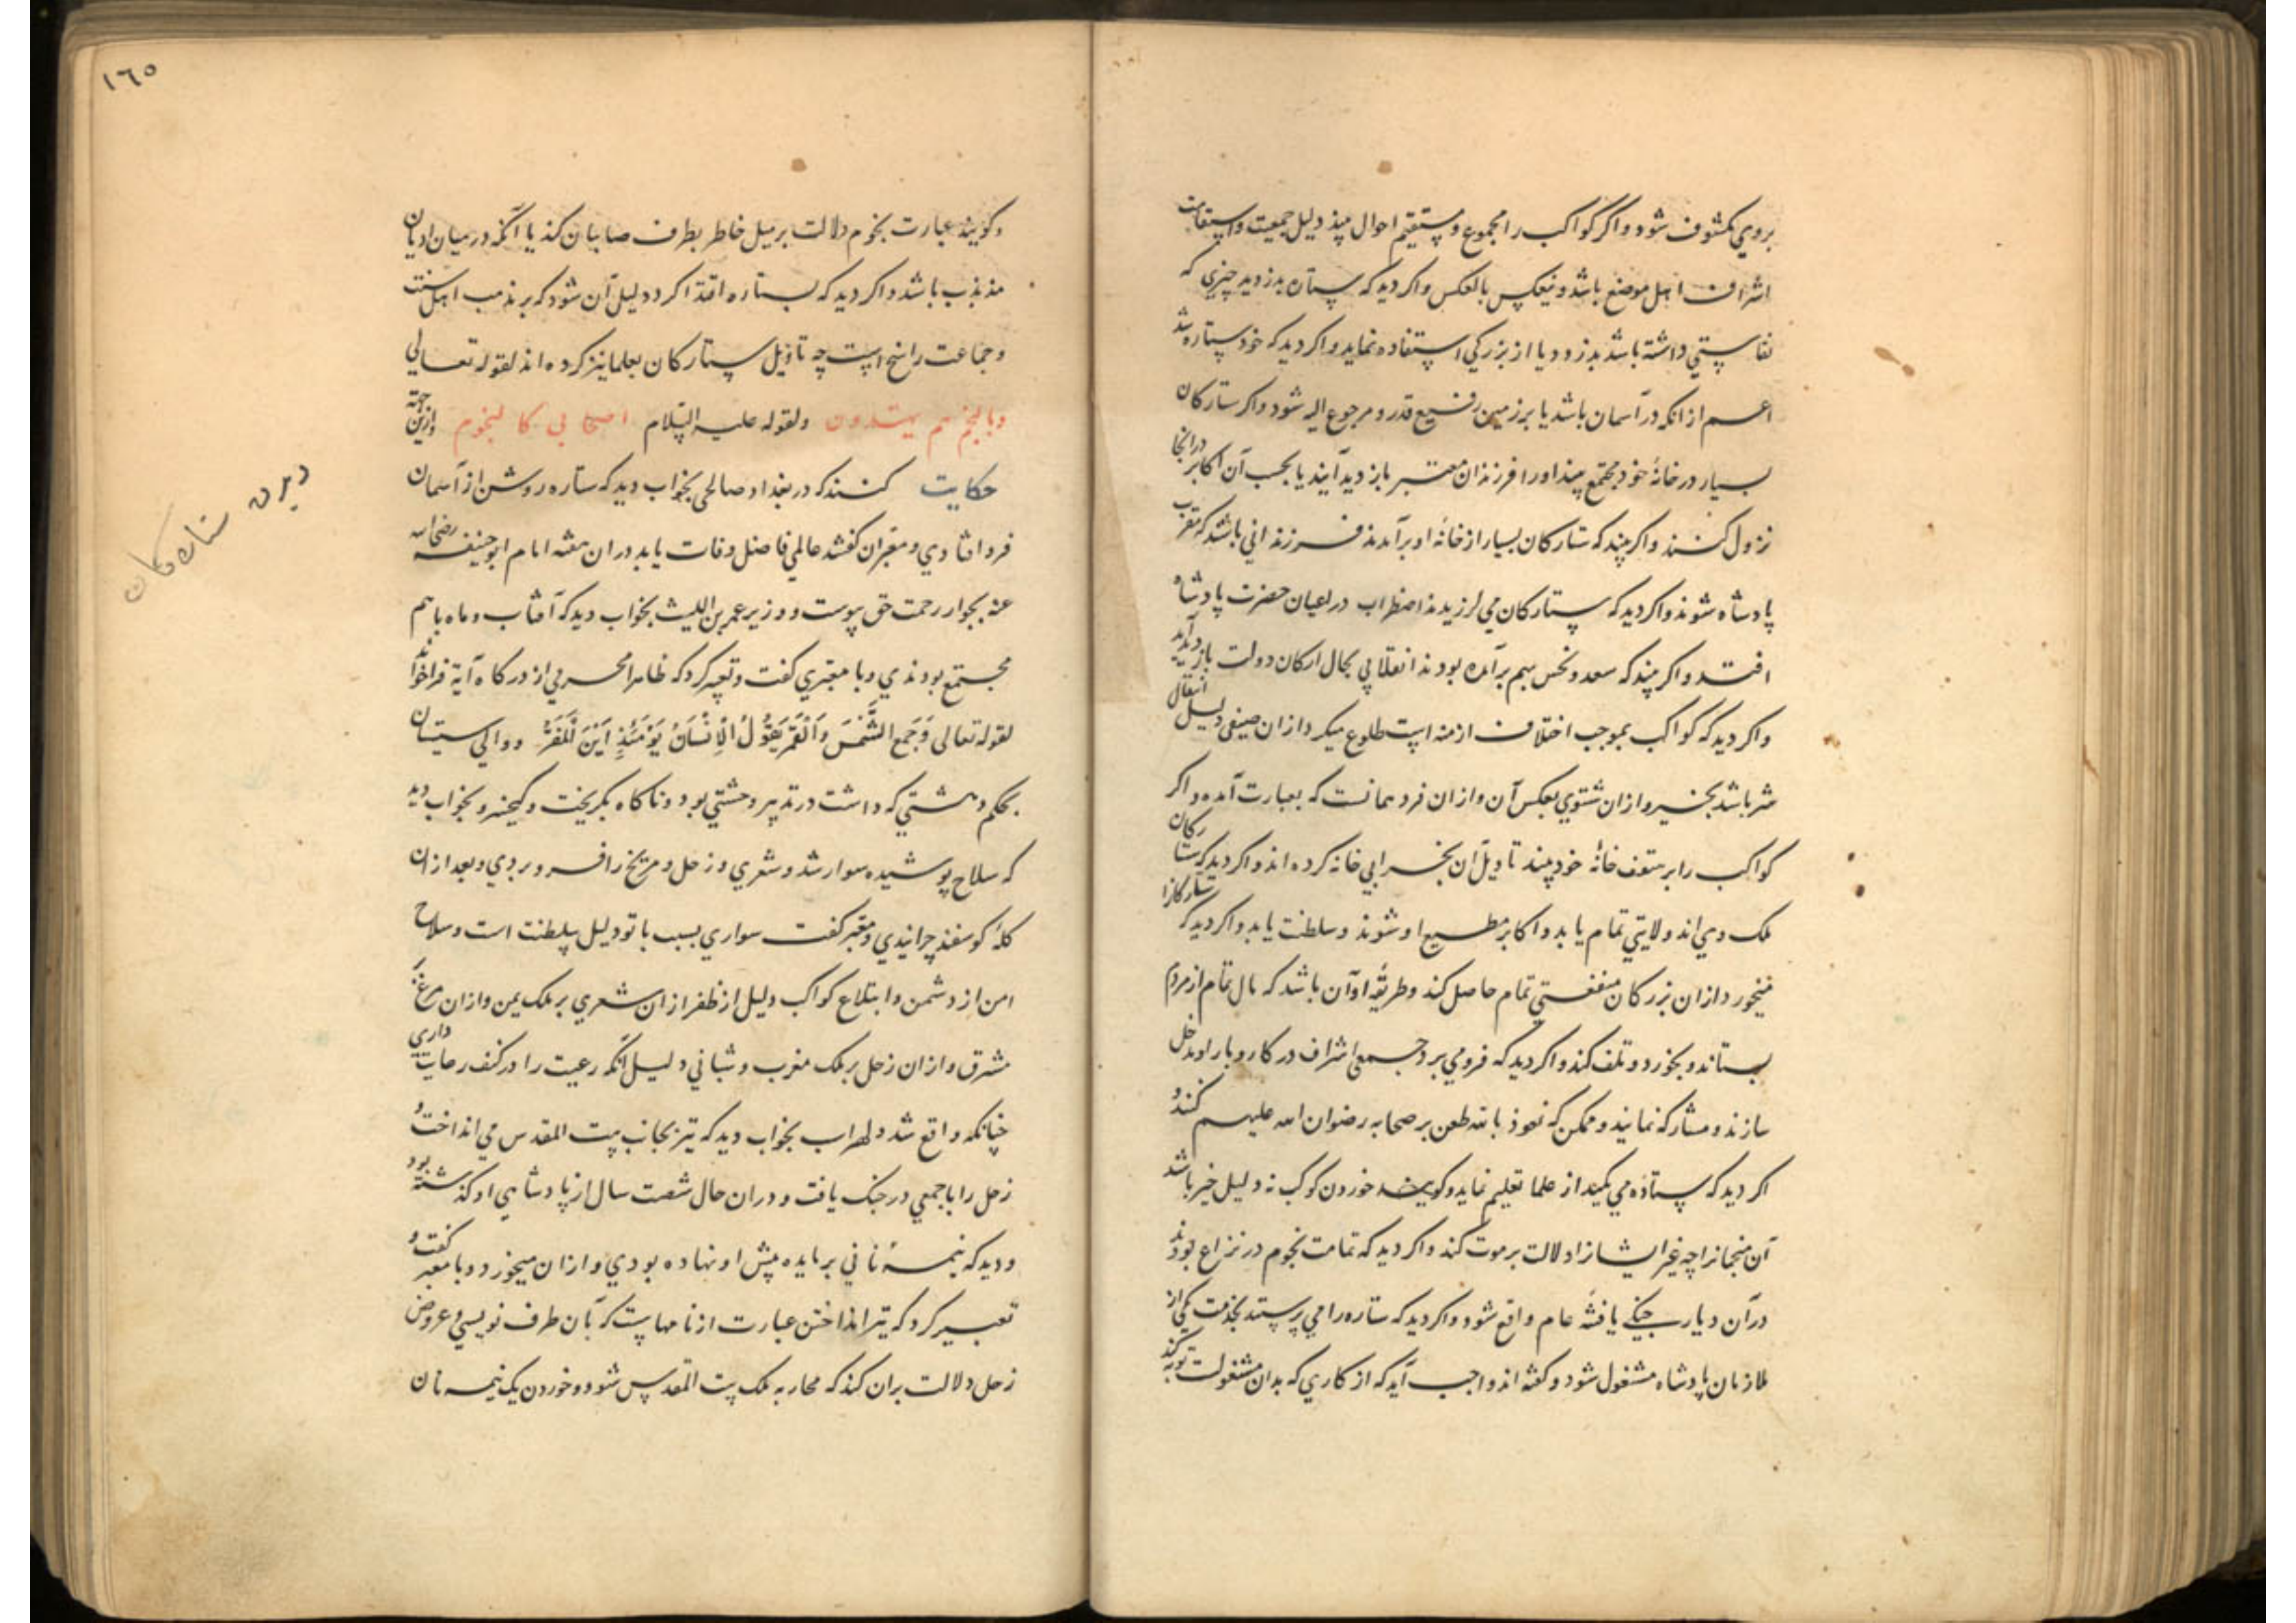 بروي مكشوف شود واكر كواكب را مجموع و مستقيم احوال بيند دليل جمعيت واستقامت
اشراف اهل موضع باشد و منعكس بالعكس واكر ديد كه ستاره بدزديد چيزي كه
نفاستي داشته باشد بدزدد ديا از بزركي استفاده نمايد واكر ديد كه خود ستاره شد
اعم از انكه در آسمان باشد يا بر زمين رفيع قدر و مرجوع اليه شود واكر ستاركان
بسيار در خانهٔ خود مجتمع بيند اورا فرزندان معتبر باز ديد آيند يا بحسب آن اكابر درانجا
نزول كنند واكر بيند كه ستاركان بسيار از خانهٔ او برآمدند فرزنداني باشند كه مقرب
پادشاه شوند واكر ديد كه ستاركان مي لرزيدند اضطراب در اعيان حضرت پادشاه
افتد واكر بيند كه سعد و نحس بهم برآمده بودند انقلابي بحال اركان دولت باز ديد آيد
واكر ديد كه كواكب بموجب اختلاف ازمنه است طلوع ميكرد ازان صيفي دليل انتقال
شر باشد بخير وازان شتوي بعكس آن وازان فرد همانست كه بعبارت آمده واكر
كواكب را بر سقف خانهٔ خود بيند تاويل آن بخرابي خانه كرده اند واكر ديد كه ستاركان
ملك وي اند ولايتي تمام يابد واكابر مطيع او شوند و سلطنت يابد واكر ديد كه ستاركانرا
ميخورد ازان بزركان منفعتي تمام حاصل كند و طريقهٔ او آن باشد كه مال تمام از مردم
بستاند و بخورد و تلف كند واكر ديد كه فرو مي برد جمعي اشراف در كاروبار او مدخل
سازند و مشاركه نمايند و ممكن كه نعوذ بالله طعن بر صحابه رضوان الله عليهم كند و
اكر ديد كه ستاده مي مكيد از علما تعليم نمايد و كويند خوردن كوكب نه دليل خير باشد
آن منجمانرا چه غير ايشانرا دلالت بر موت كند واكر ديد كه تمامت نجوم در نزاع بودند
در آن ديار جنكي يا فتنهٔ عام واقع شود واكر ديد كه ستاره را مي پرستد بخدمت يكي از
ملازمان پادشاه مشغول شود و كفته اند واجب آيد كه از كاري كه بدان مشغولست توبه كند
١٦٥
وكويند عبارت نجوم دلالت بر ميل خاطر بطرف صابيان كند يا آنكه در ميان اديان
مذبذب باشد واكر ديد كه بستاره اقتدا كرد دليل آن شود كه بر مذهب اهل سنت
و جماعت راسخ است چه تاويل ستاركان بعلما نيز كرده اند لقوله تعالي
وبالنجم هم يهتدون ولقوله عليه السلام اصحابي كالنجوم وازين جهته
حكايت كنند كه در بغداد صالحي بخواب ديد كه ستاره روشن از آسمان
فرو افتادي و معبران كفتند عالمي فاضل وفات يابد دران هفته امام ابو حنيفه رضي الله
عنه بجوار رحمت حق پيوست و وزير عمرو بن الليث بخواب ديد كه آفتاب و ماه باهم
مجتمع بودندي و با معبري كفت و تعبير كرد كه ظاهرا محرمي از دركاه آية فراخواند
لقوله تعالى وَجُمِعَ الشَّمْسُ وَالْقَمَرُ يَقُولُ الْإِنْسَانُ يَوْمَئِذٍ اَيْنَ الْمَفَرُّ و والي سيستان
بحكم وحشتي كه داشت در تدبير وحشتي بود و ناكاه بكريخت و كيخسرو بخواب ديد
كه سلاح پوشيده سوار شد و شعري و زحل و مريخ را فرو بردي و بعد ازان
كلهٔ كوسفند چرانيدي و معبر كفت سواري بسبب با تو دليل سلطنت است و سلاح
امن از دشمن و ابتلاع كواكب دليل از ظفر ازان شعري بر ملك يمن وازان مريخ بر
مشرق وازان زحل بر ملك مغرب و شباني دليل آنكه رعيت را در كنف رعايت داري
چنانكه واقع شد و لهراسب بخواب ديد كه تير بجانب بيت المقدس مي انداخت و
زحل را با جمعي در جنك يافت و دران حال شصت سال از پادشاهي او كذشته بود
و ديد كه نيمهٔ ناني بر مايده پيش او نهاده بودي وازان ميخورد و با معبر كفت و
تعبير كرد كه تير انداختن عبارت از نامهاست كه بآن طرف نويسي و عروض
زحل دلالت بران كند كه محاربه ملك بيت المقدس شود و خوردن يك نيمه نان
ستاره كان